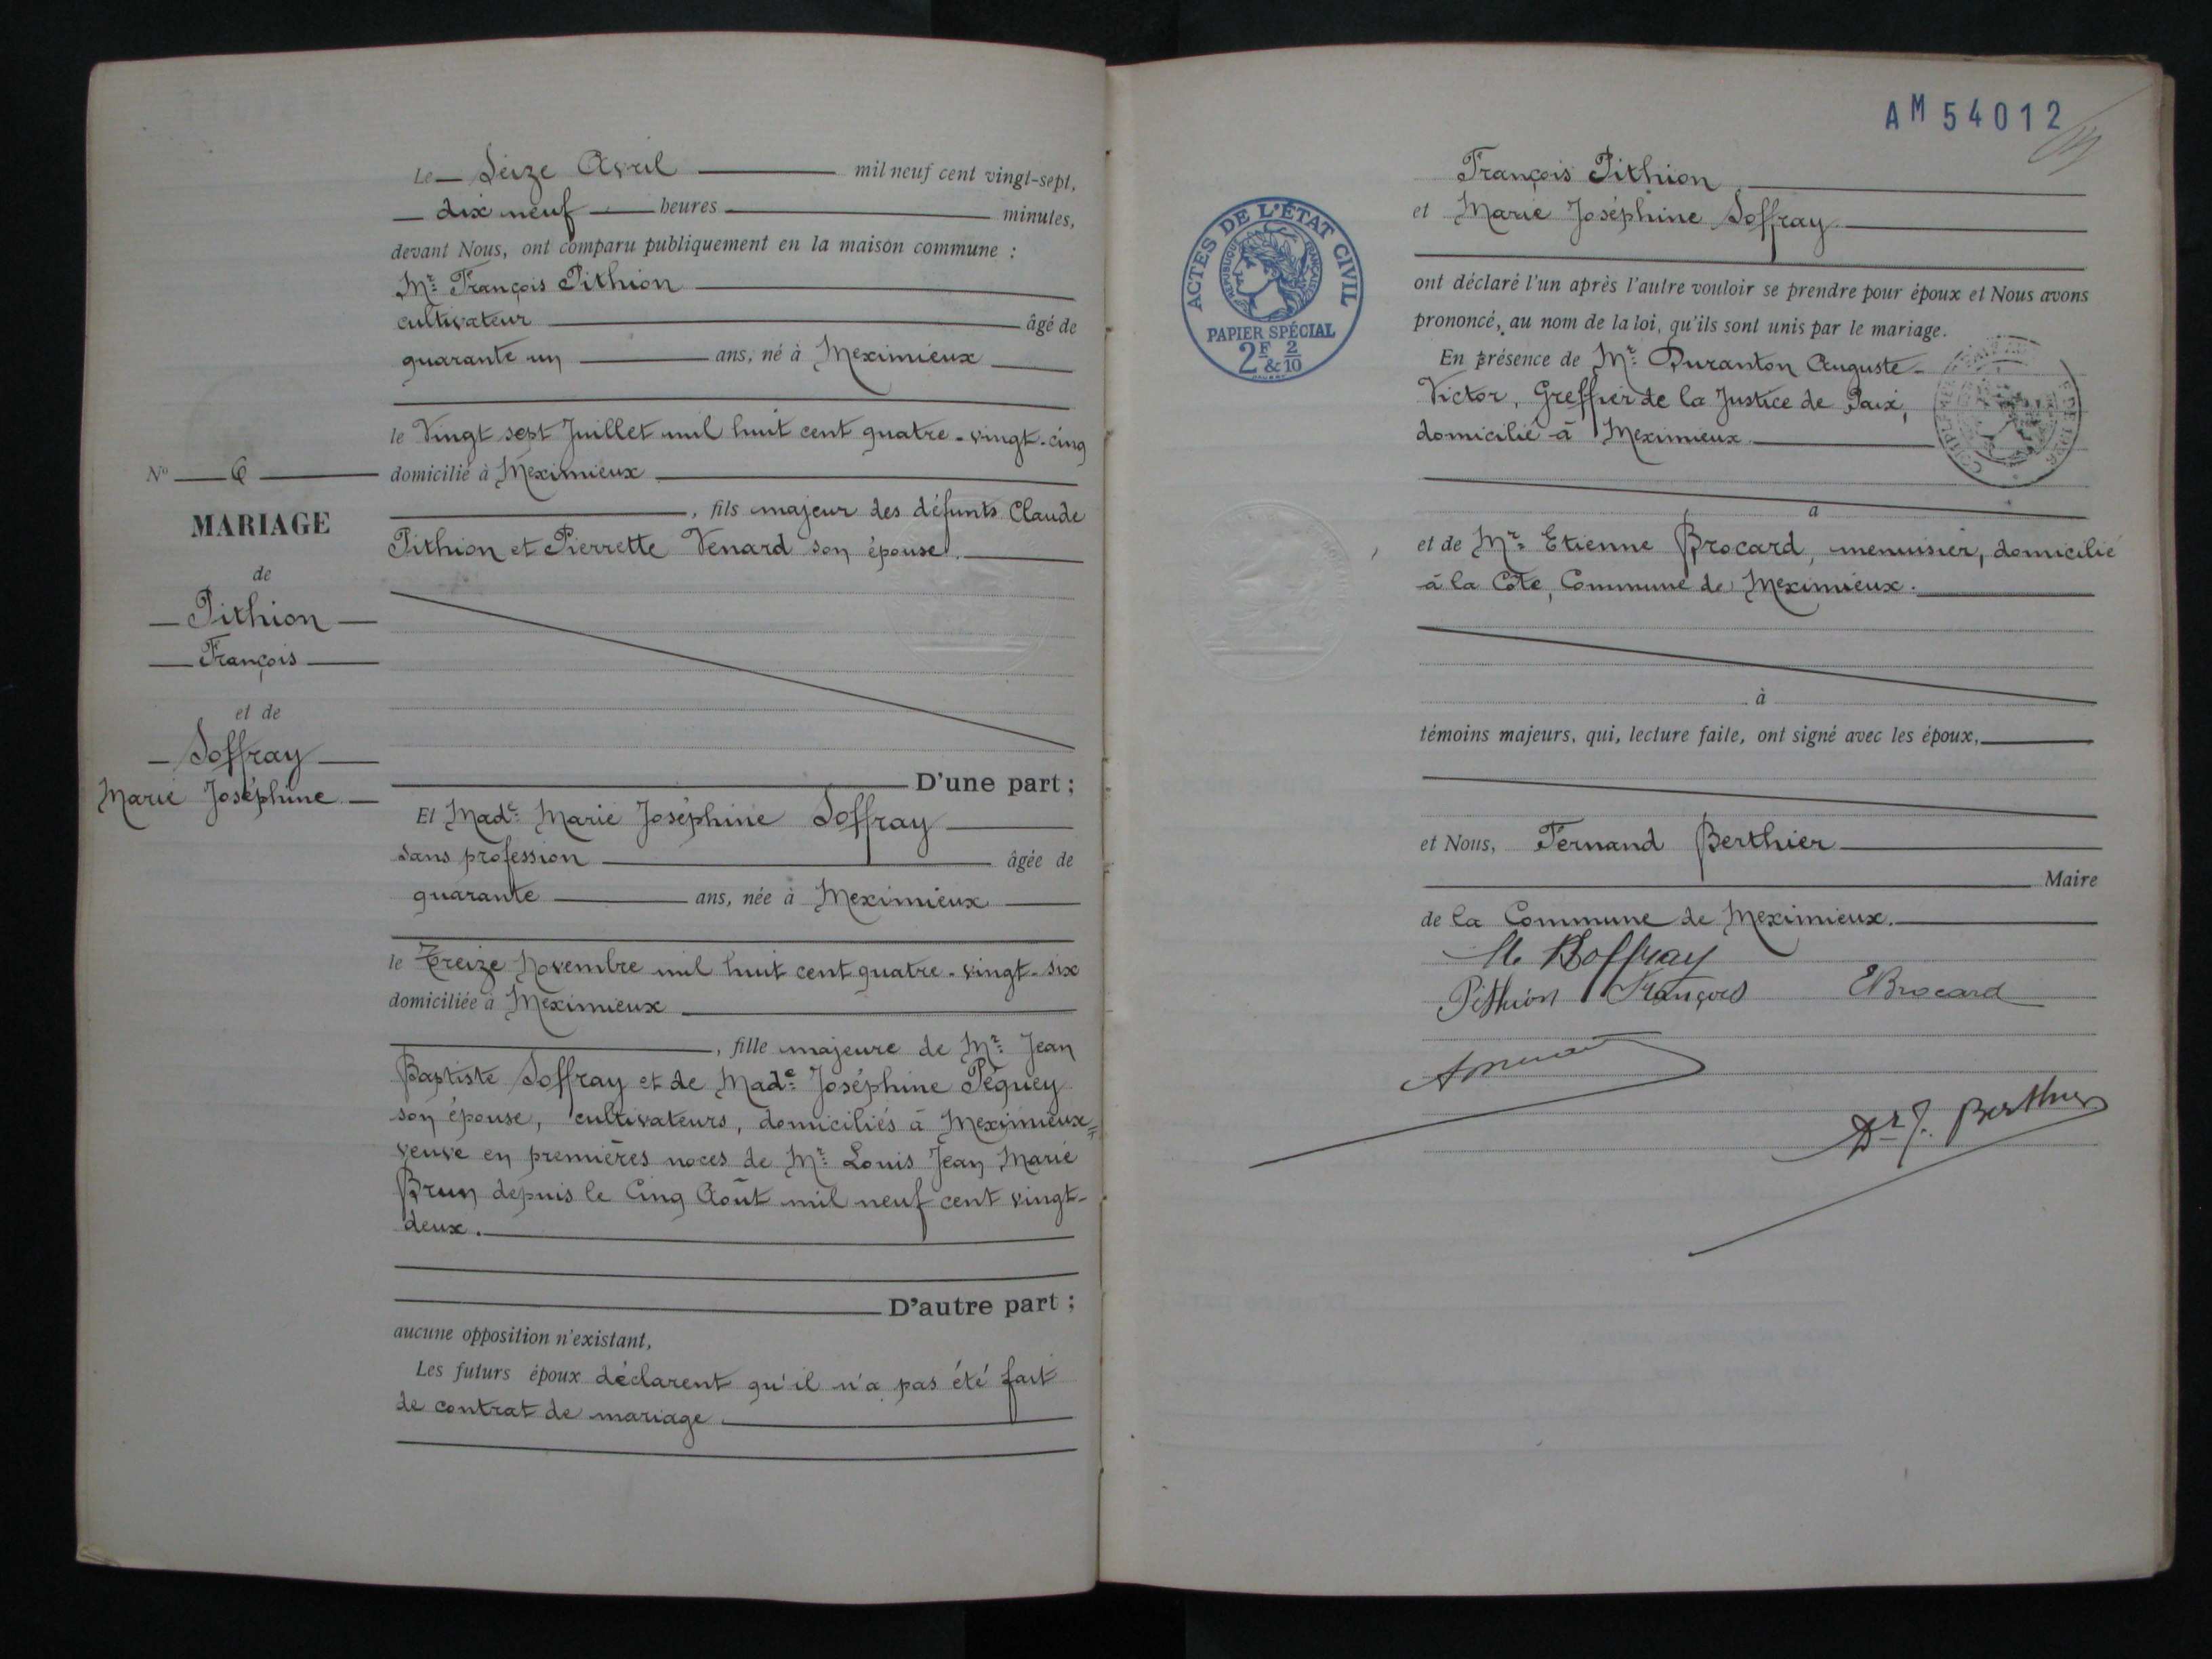 Le Seize Avril mil neuf cent vingt-sept,
dix neuf heures minutes,
devant Nous, ont comparu publiquement en la maison commune :
Mr François Pithion
cultivateur âgé de
quarante un ans, né à Meximieux
le Vingt sept Juillet mil huit cent quatre-vingt-cinq
domicilié à Meximieux
, fils majeur des défunts Claude
Pithion et Pierrette Venard son épouse.
N° 6
MARIAGE
de
Pithion
François
et de
Soffray
Marie Joséphine
D'une part ;
Et Made Marie Joséphine Soffray
sans profession âgée de
quarante ans, née à Meximieux
le Treize Novembre mil huit cent quatre-vingt-six
domiciliée à Meximieux
, fille majeure de Mr Jean
Baptiste Soffray et de Made Joséphine Péguey
son épouse, cultivateurs, domiciliés à Meximieux=
veuve en premières noces de Mr Louis Jean Marie
Brun depuis le Cinq Août mil neuf cent vingt-
deux.
D'autre part ;
aucune opposition n'existant,
Les futurs époux déclarent qu'il n'a pas été fait
de contrat de mariage
AM 54012
ACTES DE L'ÉTAT CIVIL
RÉPUBLIQUE FRANÇAISE
PAPIER SPÉCIAL
2F & 2/10
François Pithion
et Marie Joséphine Soffray
ont déclaré l'un après l'autre vouloir se prendre pour époux et Nous avons
prononcé, au nom de la loi, qu'ils sont unis par le mariage.
En présence de Mr Duranton Auguste-
Victor, Greffier de la Justice de Paix,
domicilié à Meximieux
à
et de Mr Etienne Brocard, menuisier, domicilié
à la Côte, Commune de Meximieux.
à
témoins majeurs, qui, lecture faite, ont signé avec les époux,
et Nous, Fernand Berthier
Maire
de la Commune de Meximieux.
M Soffray
Pithion François EBrocard
Dr F. Berthier